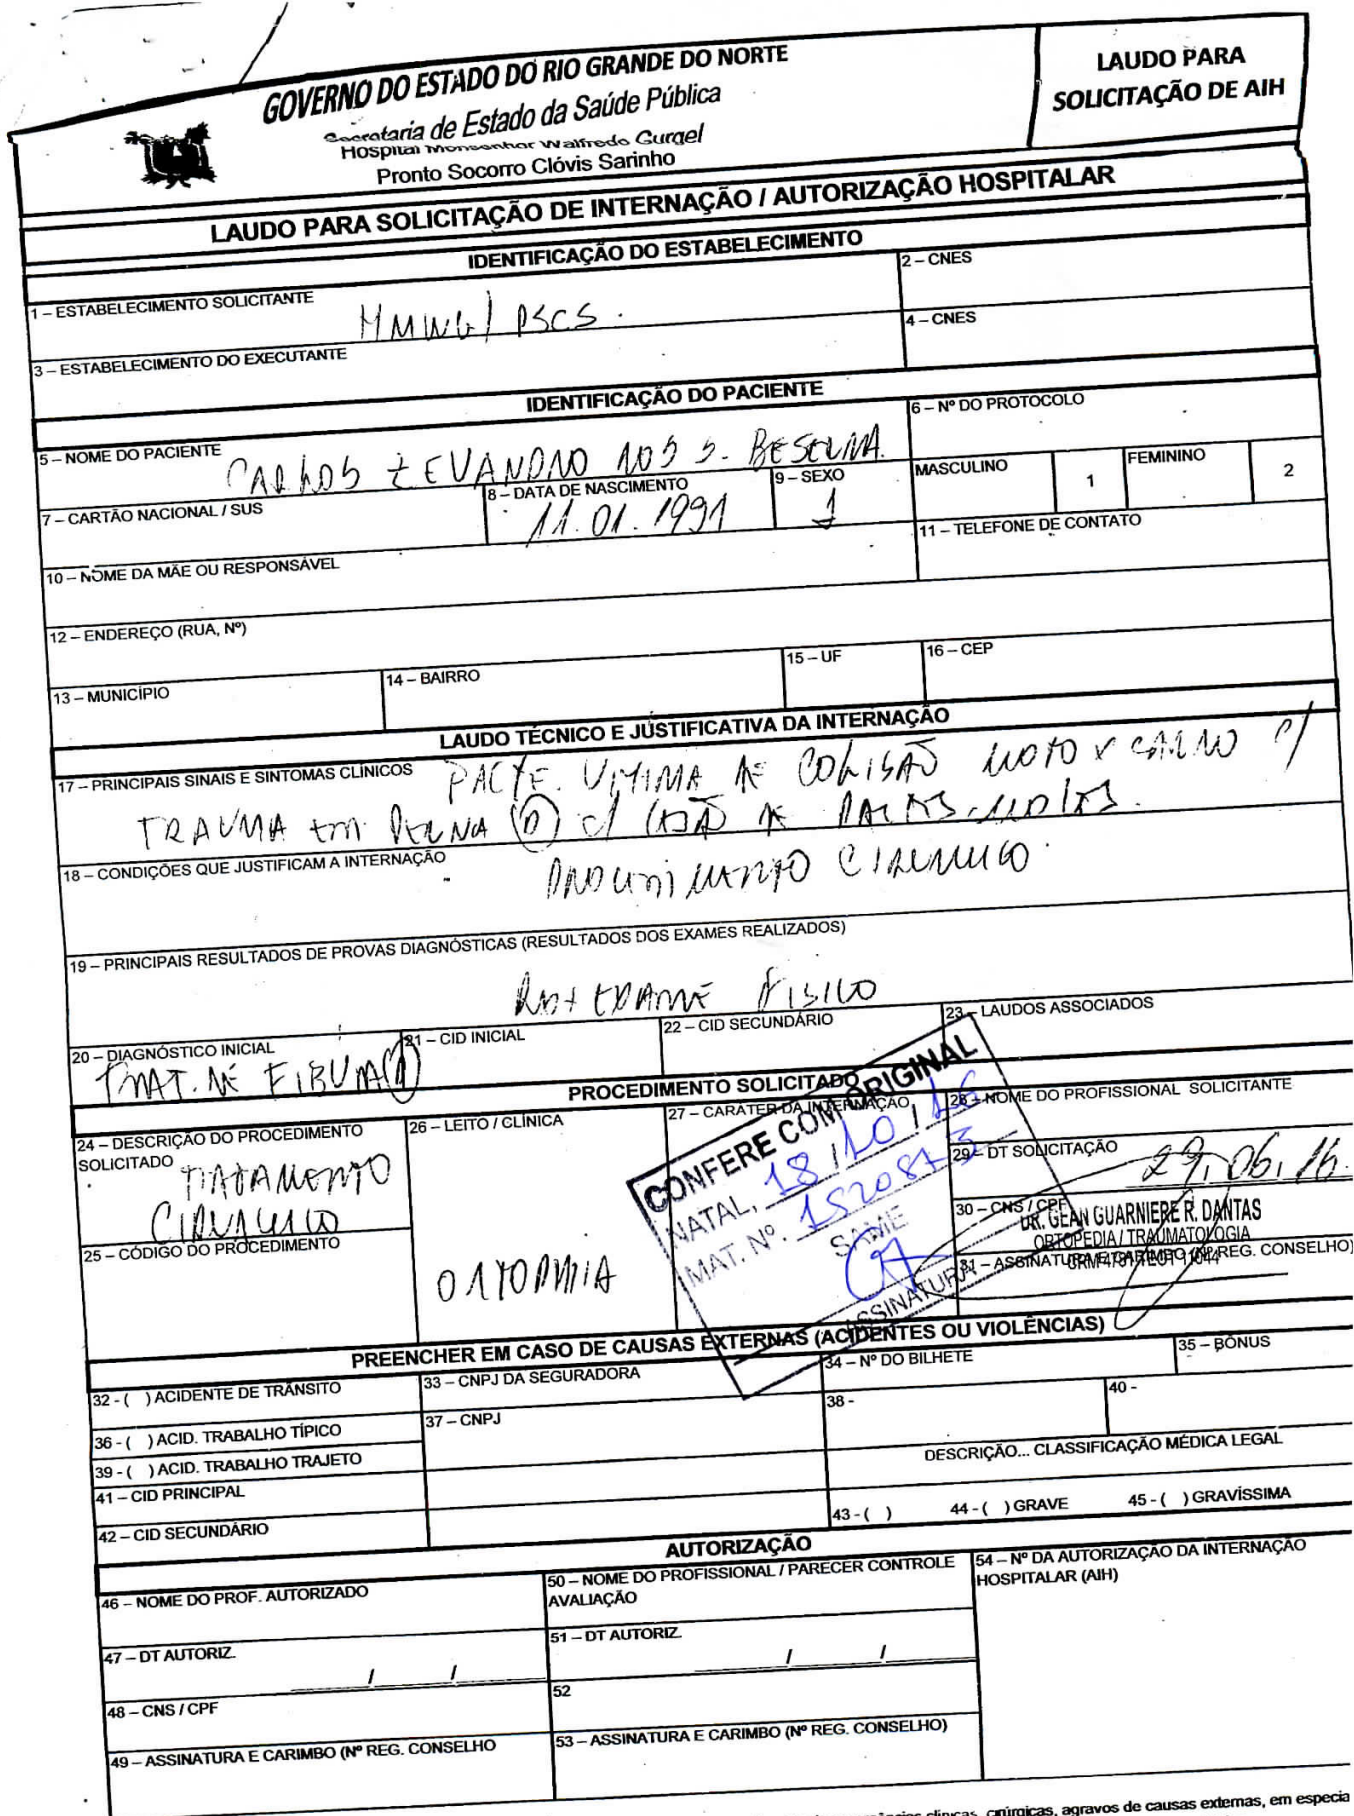 GOVERNO DO ESTADO DO RIO GRANDE DO NORTE
Secretaria de Estado da Saúde Pública
Hospital Monsenhor Walfredo Gurgel
Pronto Socorro Clóvis Sarinho
LAUDO PARA
SOLICITAÇÃO DE AIH
LAUDO PARA SOLICITAÇÃO DE INTERNAÇÃO / AUTORIZAÇÃO HOSPITALAR
IDENTIFICAÇÃO DO ESTABELECIMENTO
1 – ESTABELECIMENTO SOLICITANTE
HMWG/ PSCS.
2 – CNES
3 – ESTABELECIMENTO DO EXECUTANTE
4 – CNES
IDENTIFICAÇÃO DO PACIENTE
5 – NOME DO PACIENTE
CARLOS EVANDRO DOS S. BESERRA.
6 – Nº DO PROTOCOLO
7 – CARTÃO NACIONAL / SUS
8 – DATA DE NASCIMENTO
11.01.1991
9 – SEXO
1
MASCULINO 1 FEMININO 2
10 – NOME DA MÃE OU RESPONSÁVEL
11 – TELEFONE DE CONTATO
12 – ENDEREÇO (RUA, Nº)
13 – MUNICÍPIO
14 – BAIRRO
15 – UF
16 – CEP
LAUDO TÉCNICO E JUSTIFICATIVA DA INTERNAÇÃO
17 – PRINCIPAIS SINAIS E SINTOMAS CLÍNICOS
PACTE. VITIMA DE COLISÃO MOTO X CARRO C/
TRAUMA EM PERNA (D) C/ LESÃO DE PARTES MOLES.
18 – CONDIÇÕES QUE JUSTIFICAM A INTERNAÇÃO
PROCEDIMENTO CIRURGICO.
19 – PRINCIPAIS RESULTADOS DE PROVAS DIAGNÓSTICAS (RESULTADOS DOS EXAMES REALIZADOS)
RX + EXAME FISICO
20 – DIAGNÓSTICO INICIAL
FRAT. DE FIBULA (D)
21 – CID INICIAL
22 – CID SECUNDÁRIO
23 – LAUDOS ASSOCIADOS
PROCEDIMENTO SOLICITADO
24 – DESCRIÇÃO DO PROCEDIMENTO
SOLICITADO
TRATAMENTO
CIRURGICO
25 – CÓDIGO DO PROCEDIMENTO
26 – LEITO / CLÍNICA
ORTOPEDIA
27 – CARÁTER DA INTERNAÇÃO
CONFERE COM ORIGINAL
NATAL, 18/10/16
MAT. Nº. 1520873
SAME
ASSINATURA
28 – NOME DO PROFISSIONAL SOLICITANTE
29 – DT SOLICITAÇÃO
29.06.16.
30 – CNS / CPF
DR. GEAN GUARNIERE R. DANTAS
ORTOPEDIA / TRAUMATOLOGIA
31 – ASSINATURA E CARIMBO (Nº REG. CONSELHO)
PREENCHER EM CASO DE CAUSAS EXTERNAS (ACIDENTES OU VIOLÊNCIAS)
32 - ( ) ACIDENTE DE TRÂNSITO
33 – CNPJ DA SEGURADORA
34 – Nº DO BILHETE
35 – BÔNUS
36 - ( ) ACID. TRABALHO TÍPICO
37 – CNPJ
38 -
40 -
39 - ( ) ACID. TRABALHO TRAJETO
DESCRIÇÃO... CLASSIFICAÇÃO MÉDICA LEGAL
41 – CID PRINCIPAL
42 – CID SECUNDÁRIO
43 - ( ) 44 - ( ) GRAVE 45 - ( ) GRAVÍSSIMA
AUTORIZAÇÃO
46 – NOME DO PROF. AUTORIZADO
50 – NOME DO PROFISSIONAL / PARECER CONTROLE
AVALIAÇÃO
54 – Nº DA AUTORIZAÇÃO DA INTERNAÇÃO
HOSPITALAR (AIH)
47 – DT AUTORIZ.
/ /
51 – DT AUTORIZ.
/ /
48 – CNS / CPF
52
49 – ASSINATURA E CARIMBO (Nº REG. CONSELHO
53 – ASSINATURA E CARIMBO (Nº REG. CONSELHO)
clínicas, cirúrgicas, agravos de causas externas, em especia